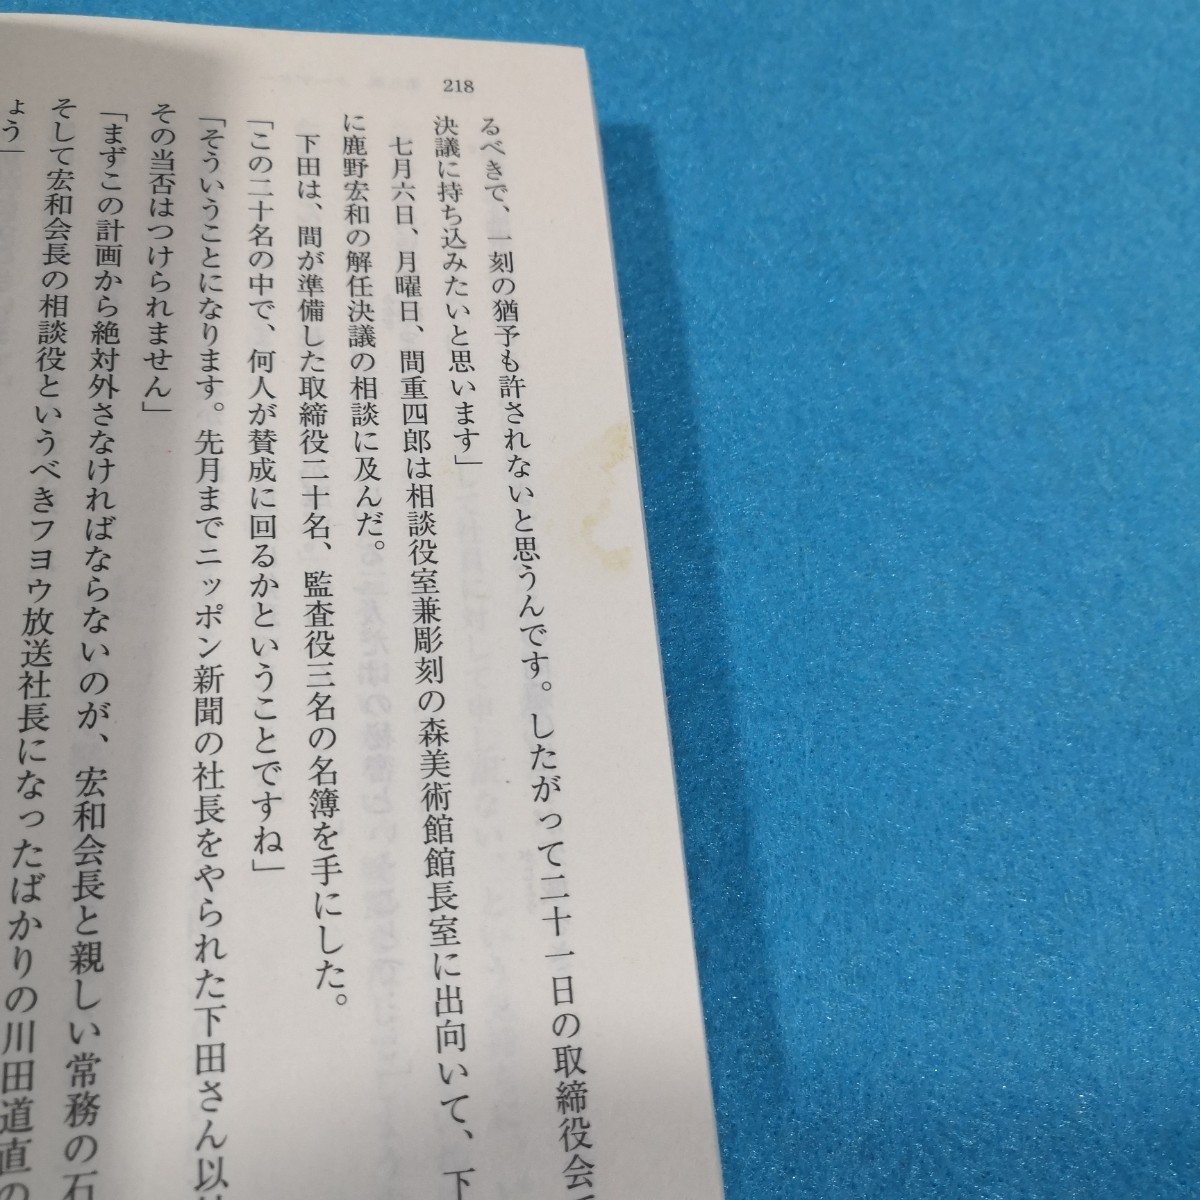 218
るべきで、一刻の猶予も許されないと思うんです。したがって二十一日の取締役会で
決議に持ち込みたいと思います」
七月六日、月曜日、間重四郎は相談役室兼彫刻の森美術館館長室に出向いて、下
に鹿野宏和の解任決議の相談に及んだ。
下田は、間が準備した取締役二十名、監査役三名の名簿を手にした。
「この二十名の中で、何人が賛成に回るかということですね」
「そういうことになります。先月までニッポン新聞の社長をやられた下田さん以
その当否はつけられません」
「まずこの計画から絶対外さなければならないのが、宏和会長と親しい常務の石
そして宏和会長の相談役というべきフヨウ放送社長になったばかりの川田道直の
ょう」